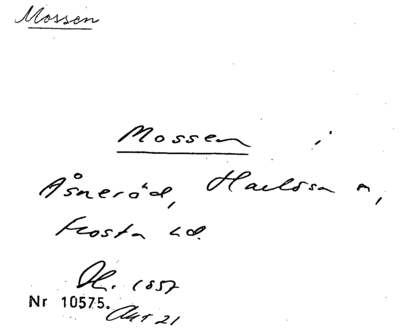 Mossen
Mossen i
Åsneröd, Harlösa n,
Frosta hd.
Dk. 1857
Nr 10575.
Akt 21